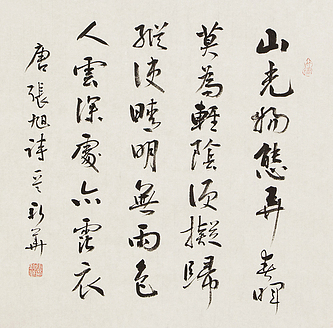 山光物態弄春暉
莫為輕陰便擬歸
縱使晴明無雨色
入雲深處亦霑衣
唐張旭詩